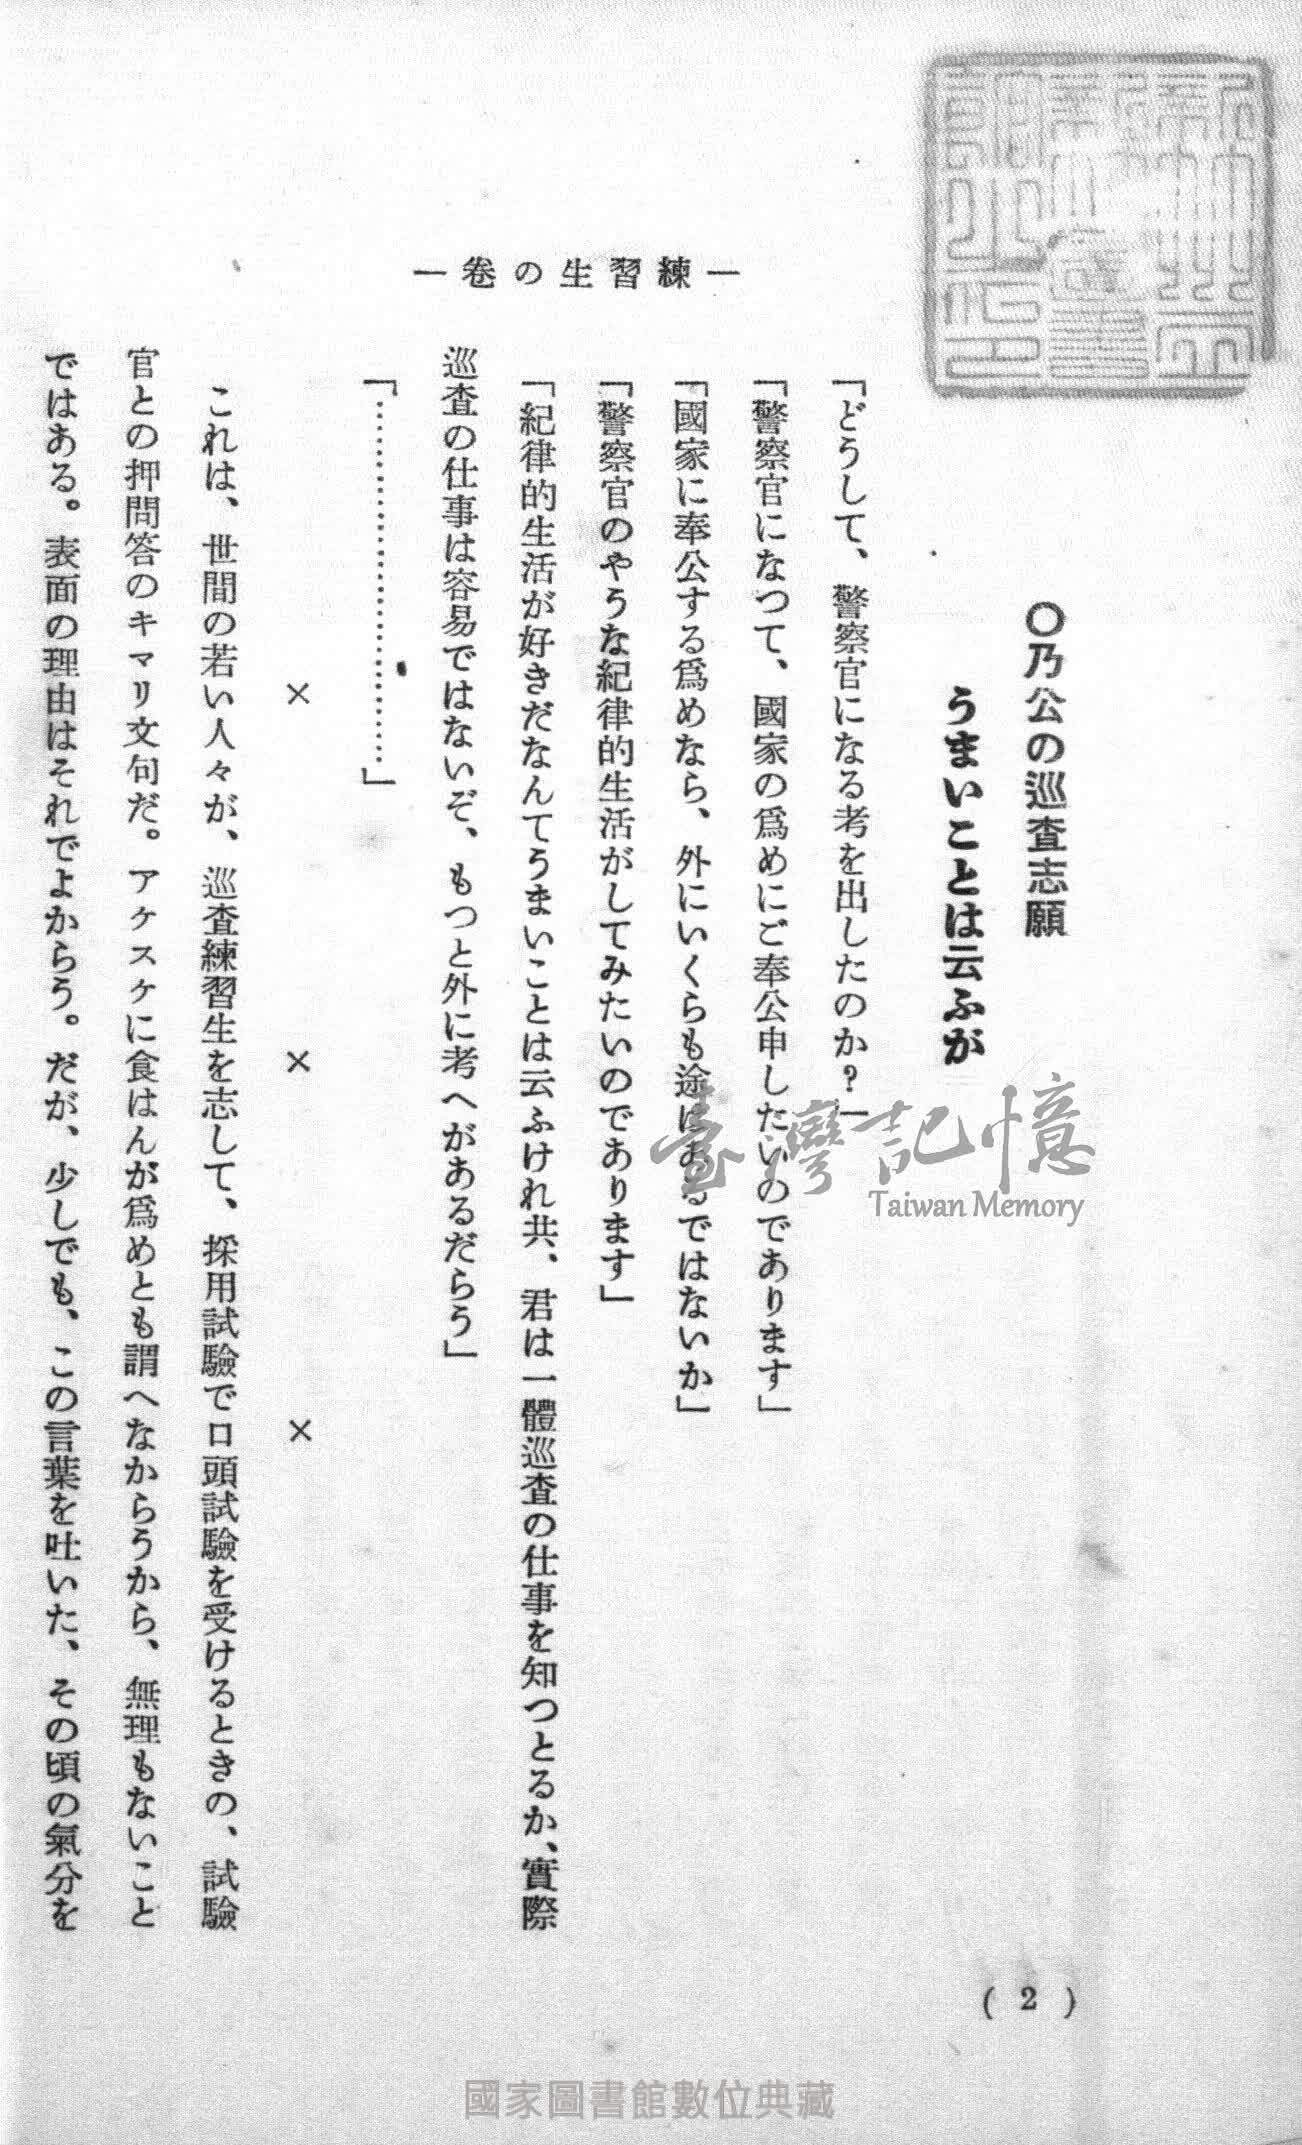 一練習生の卷一
〇乃公の巡査志願
うまいことは云ふが
「どうして、警察官になる考を出したのか?」
「警察官になつて、國家の爲めにご奉公申したいのであります」
「國家に奉公する爲めなら、外にいくらも途はあるではないか」
「警察官のやうな紀律的生活がしてみたいのであります」
「紀律的生活が好きだなんてうまいことは云ふけれ共、君は一體巡査の仕事を知つとるか、實際
巡査の仕事は容易ではないぞ、もつと外に考へがあるだらう」
「……………………………」
× × ×
これは、世間の若い人々が、巡査練習生を志して、採用試驗で口頭試驗を受けるときの、試驗
官との押問答のキマリ文句だ。アケスケに食はんが爲めとも謂へなからうから、無理もないこと
ではある。表面の理由はそれでよからう。だが、少しでも、この言葉を吐いた、その頃の氣分を
( 2 )
臺灣記憶
Taiwan Memory
國家圖書館數位典藏